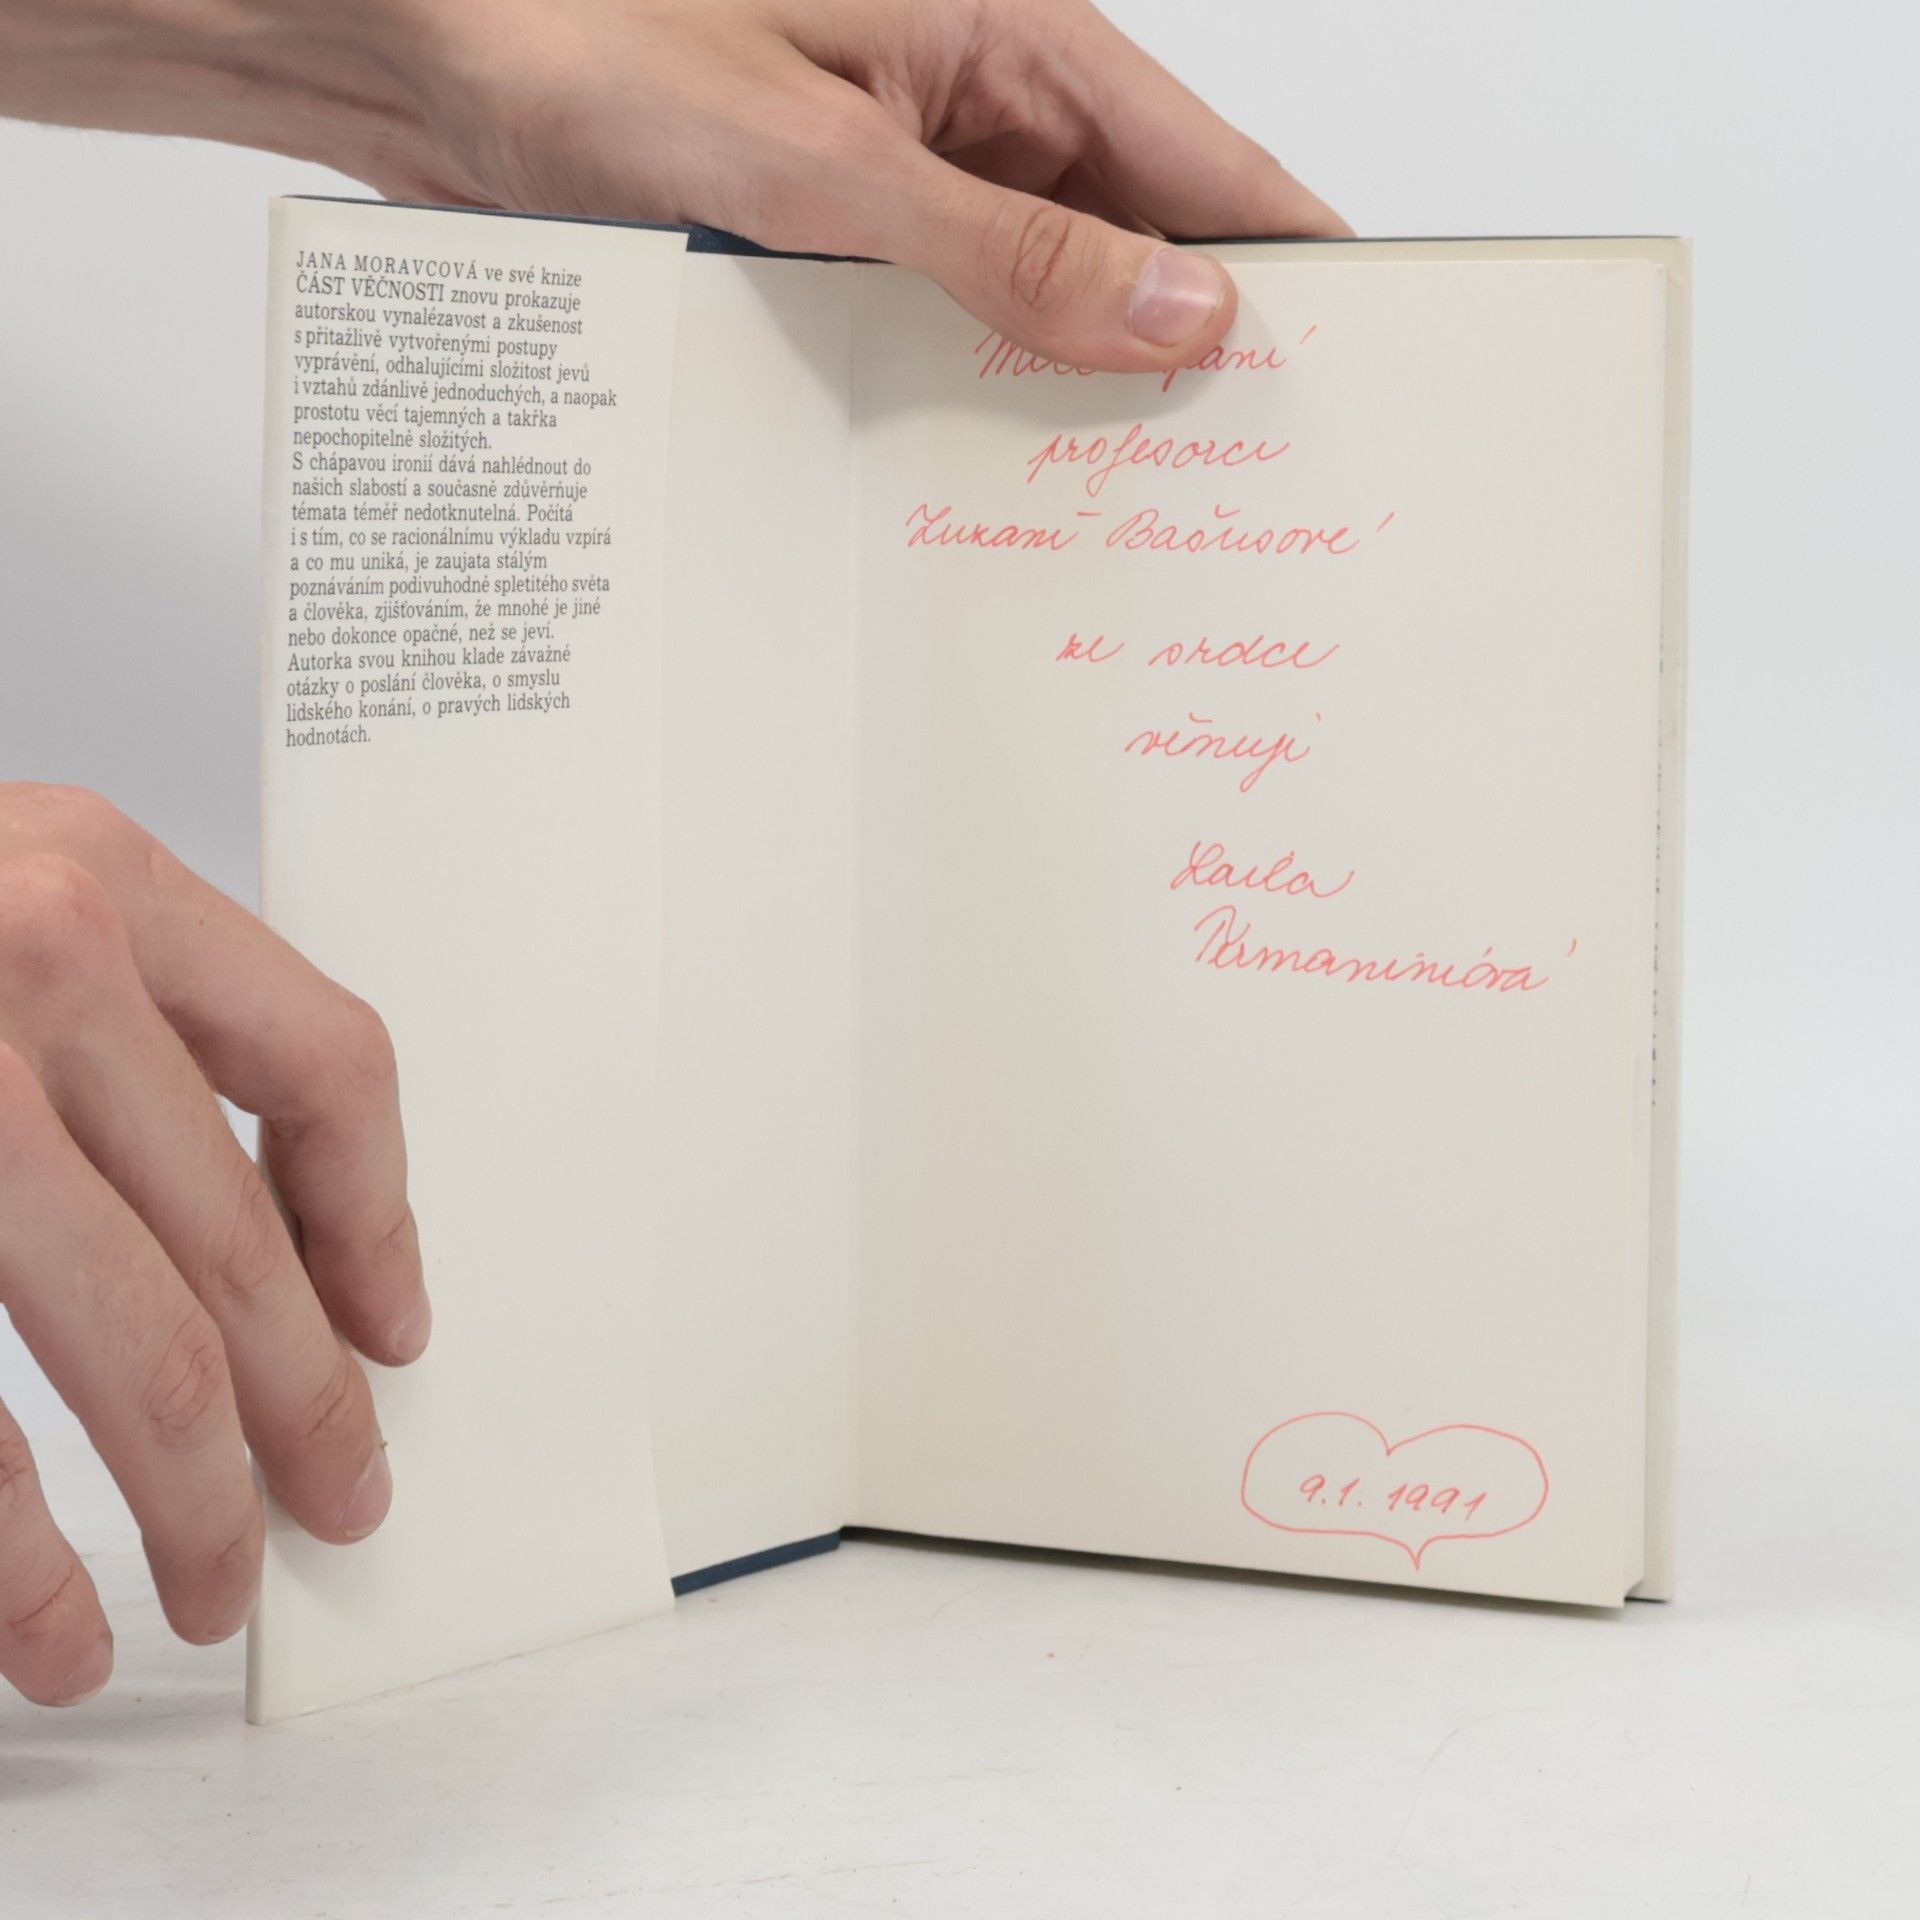 JANA MORAVCOVÁ ve své knize
ČÁST VĚČNOSTI znovu prokazuje
autorskou vynalézavost a zkušenost
s přitažlivě vytvořenými postupy
vyprávění, odhalujícími složitost jevů
i vztahů zdánlivě jednoduchých, a naopak
prostotu věcí tajemných a takřka
nepochopitelně složitých.
S chápavou ironií dává nahlédnout do
našich slabostí a současně zdůvěrňuje
témata téměř nedotknutelná. Počítá
i s tím, co se racionálnímu výkladu vzpírá
a co mu uniká, je zaujata stálým
poznáváním podivuhodně spletitého světa
a člověka, zjišťováním, že mnohé je jiné
nebo dokonce opačné, než se jeví.
Autorka svou knihou klade závažné
otázky o poslání člověka, o smyslu
lidského konání, o pravých lidských
hodnotách.
paní
profesorce
Zuzaně Bašusové
ze srdce
věnuji
9.1. 1991